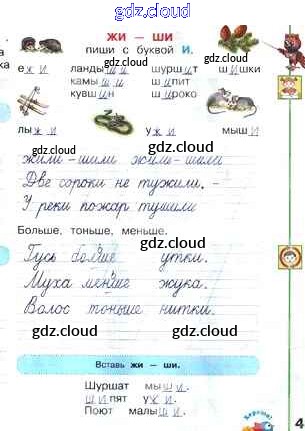 gdz.cloud
ЖИ – ШИ
пиши с буквой И.
gdz.cloud gdz.cloud
ежи ландыши шуршит шишки
камыши шипит
кувшин широко
gdz.cloud
лыжи ужи мыши
gdz.cloud
жили – шили жили – шили
Две сороки не тужили. –
У реки пожар тушили
gdz.cloud
Больше, тоньше, меньше.
Гусь больше утки.
gdz.cloud gdz.cloud
Муха меньше жука.
Волос тоньше нитки.
gdz.cloud gdz.cloud
Вставь жи – ши.
gdz.cloud
Шуршат мыши.
Шипят ужи.
Поют малыши.
gdz.cloud
Хорошо!
4